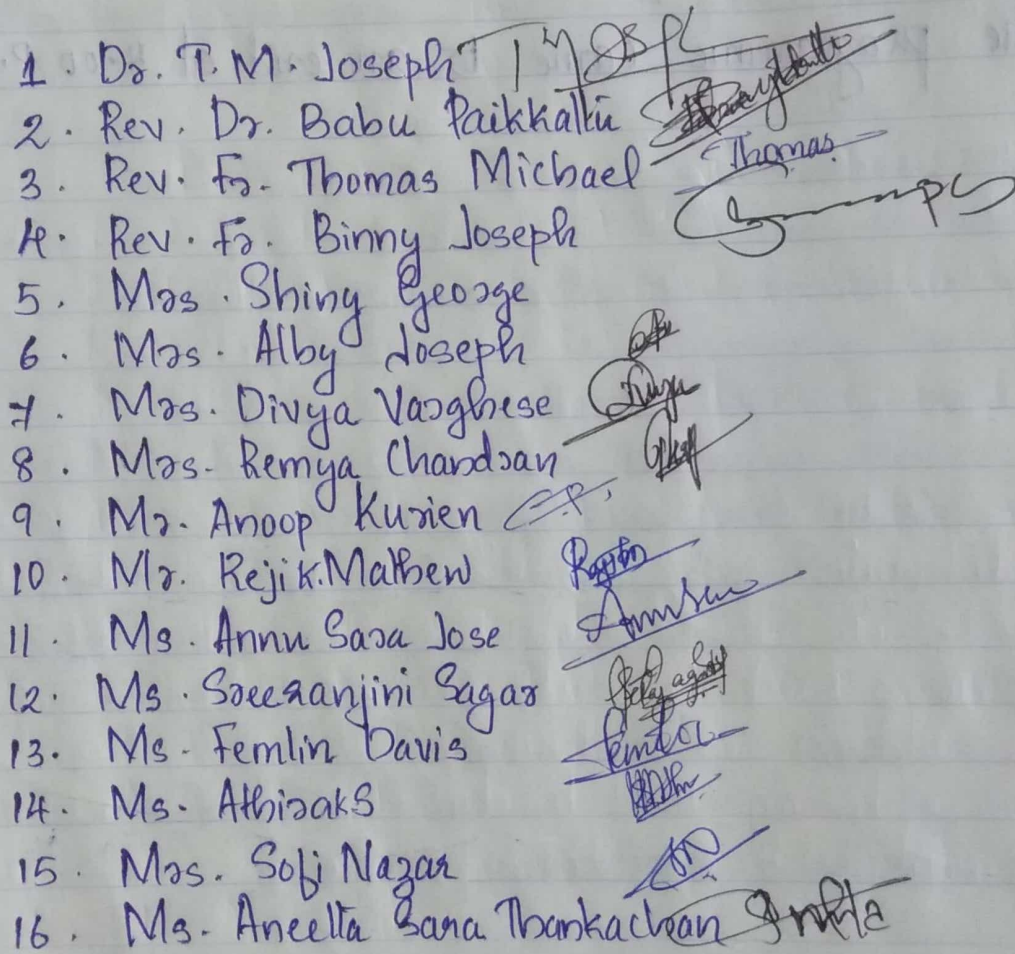 1. Dr. T.M. Joseph
2. Rev. Dr. Babu Paikkattu
3. Rev. Fr. Thomas Michael Thomas
4. Rev. Fr. Binny Joseph
5. Mrs. Shiny George
6. Mrs. Alby Joseph
7. Mrs. Divya Varghese Divya
8. Mrs. Remya Chandran
9. Mr. Anoop Kurien
10. Mr. Reji K. Mathew
11. Ms. Annu Sara Jose
12. Ms. Sreeranjini Sagar
13. Ms. Femlin Davis
14. Ms. Athira K S
15. Mrs. Sofi Nazar
16. Ms. Aneetta Sara Thankachan